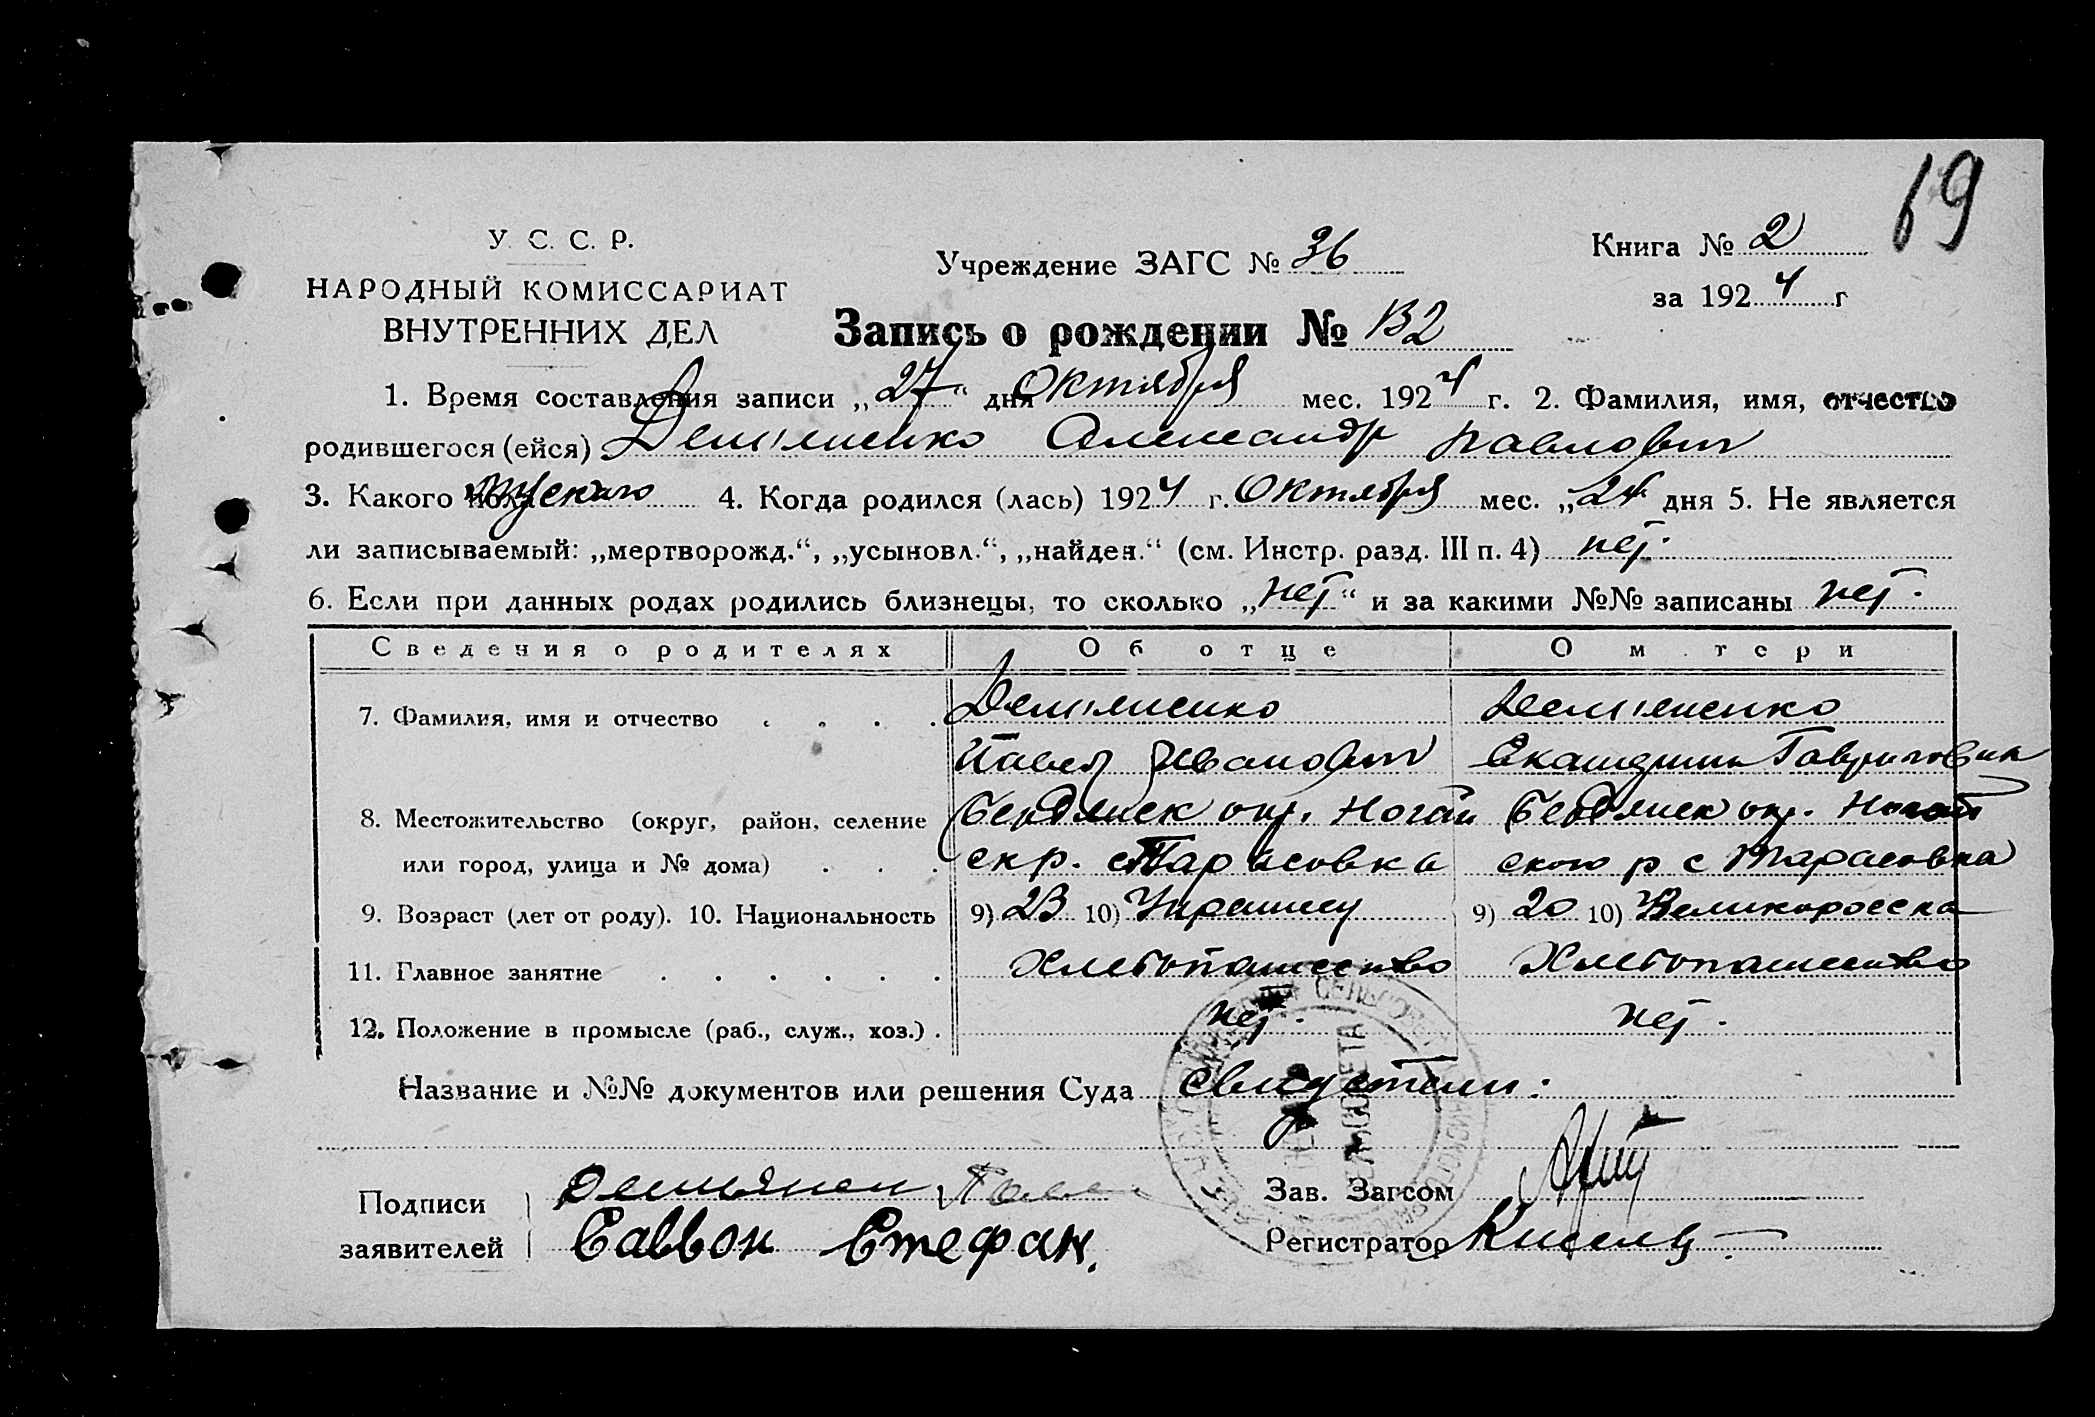 69
У. С. С. Р.
НАРОДНЫЙ КОМИССАРИАТ
ВНУТРЕННИХ ДЕЛ
Учреждение ЗАГС № 36
Книга № 2
за 1924 г
Запись о рождении № 132
1. Время составления записи „27“ дня Октября мес. 1924 г. 2. Фамилия, имя, отчество
родившегося (ейся) Демяненко Александр Павлович
3. Какого пола мускаго 4. Когда родился (лась) 1924 г. Октября мес. „24 дня 5. Не является
ли записываемый: „мертворожд.“, „усыновл.“, „найден.“ (см. Инстр. разд. III п. 4) нет.
6. Если при данных родах родились близнецы, то сколько „нет“ и за какими №№ записаны нет.
Сведения о родителях Об отце О матери
7. Фамилия, имя и отчество Демяненко Демяненко
Павел Иванович Екатерина Гавриловна
8. Местожительство (округ, район, селение Бердянск окр. Ногай Бердянск окр. Ногай
или город, улица и № дома) ск р. с Тарасовка ского р с Тарасовка
9. Возраст (лет от роду). 10. Национальность 9) 23 10) Украинец 9) 20 10) Великоросска
11. Главное занятие Хлебопашество Хлебопашество
12. Положение в промысле (раб., служ., хоз.) нет. нет.
Название и №№ документов или решения Суда
Подписи Зав. Загсом
заявителей Саввон Стефан. Регистратор